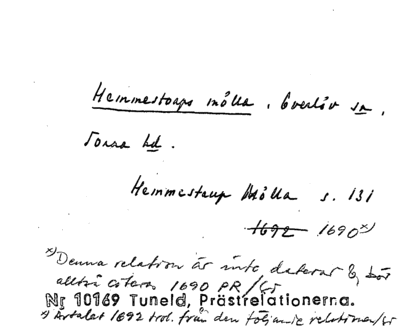 Hemmestorps mölla, Everlöv sn,
Torna hd.
Hemmestrup Mölla s. 131
1692 1690 x)
x) Denna relation är inte daterad &, bör
alltså citeras 1690 PR/GS
Nr 10169 Tuneld, Prästrelationerna.
x) Årtalet 1692 trol. från den följande relationen/GS